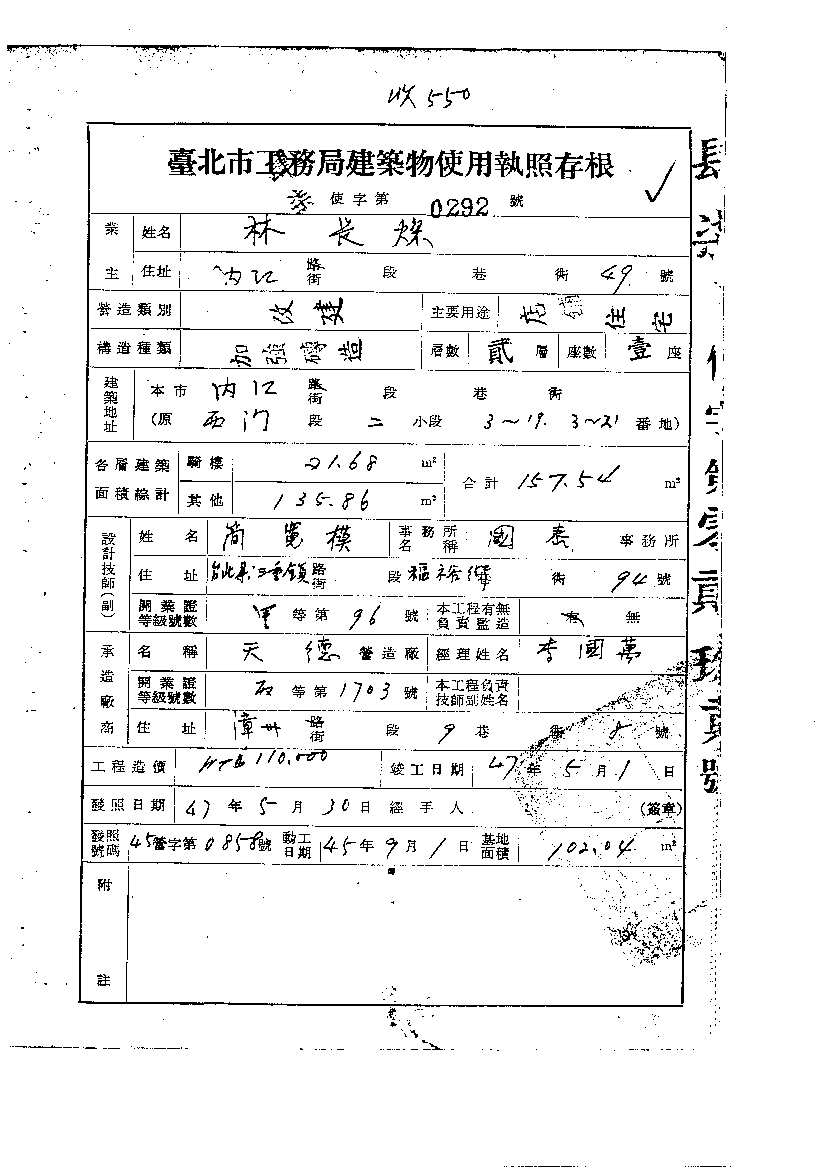 收550
臺北市工務局建築物使用執照存根
使字第 0292 號
業主 姓名 林長燦
住址 內江 路街 段 巷 衖 49 號
營造類別 改建 主要用途 店鋪住宅
構造種類 加強磚造 層數 貳 層 座數 壹 座
建築地址 本市 內江 路街 段 巷 衖
(原 西門 段 二 小段 3~19. 3~21 番地)
各層建築面積綜計 騎樓 21.68 m² 合計 157.54 m²
其他 135.86 m²
設計技師(副) 姓名 簡寬模 事務所名稱 國泰 事務所
住址 台北縣三重鎮 路街 段 福裕 巷 衖 94 號
開業證等級號數 甲 等第 96 號 本工程有無負責監造 有 無
承造廠商 名稱 天德 營造廠 經理姓名 李國萬
開業證等級號數 等第 1703 號 本工程負責技師副姓名
住址 漳州 路街 段 9 巷 衖 8 號
工程造價 NT$110,000 竣工日期 47 年 5 月 1 日
發照日期 47 年 5 月 30 日 經手人 (簽章)
發照號碼 45 營字第 0858 號 動工日期 45 年 9 月 1 日 基地面積 102.04 m²
附註